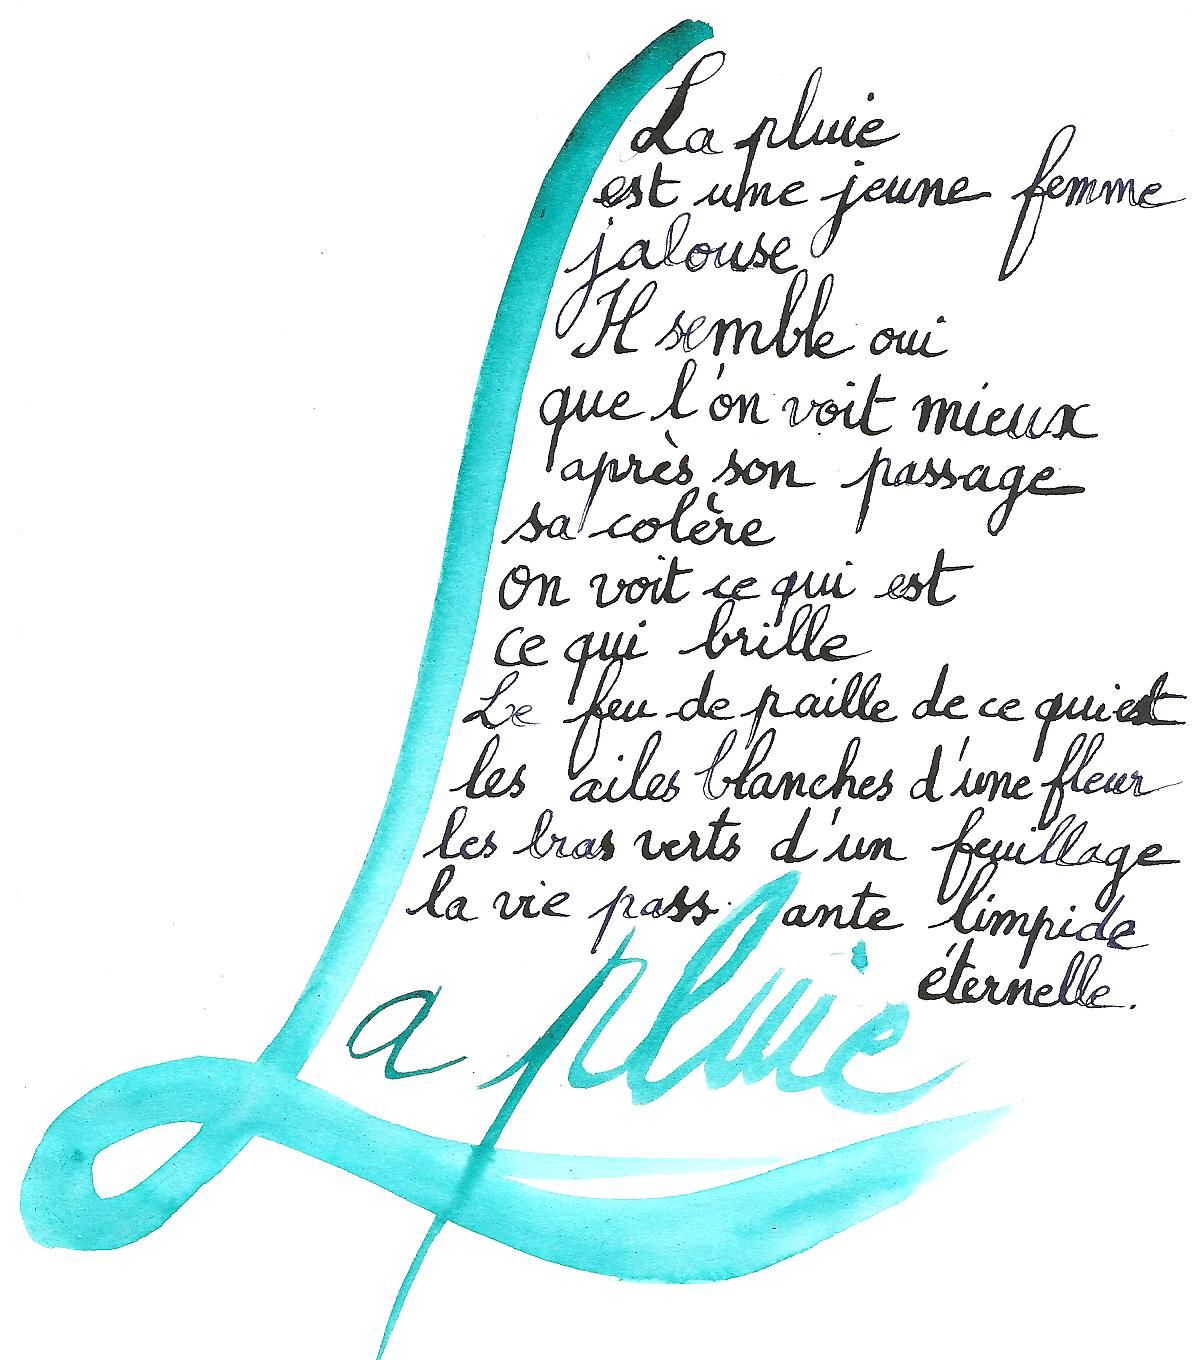 La pluie
est une jeune femme
jalouse
Il semble oui
que l'on voit mieux
après son passage
sa colère
on voit ce qui est
ce qui brille
Le feu de paille de ce qui est
les ailes blanches d'une fleur
les bras verts d'un feuillage
la vie passante limpide
éternelle.
La pluie